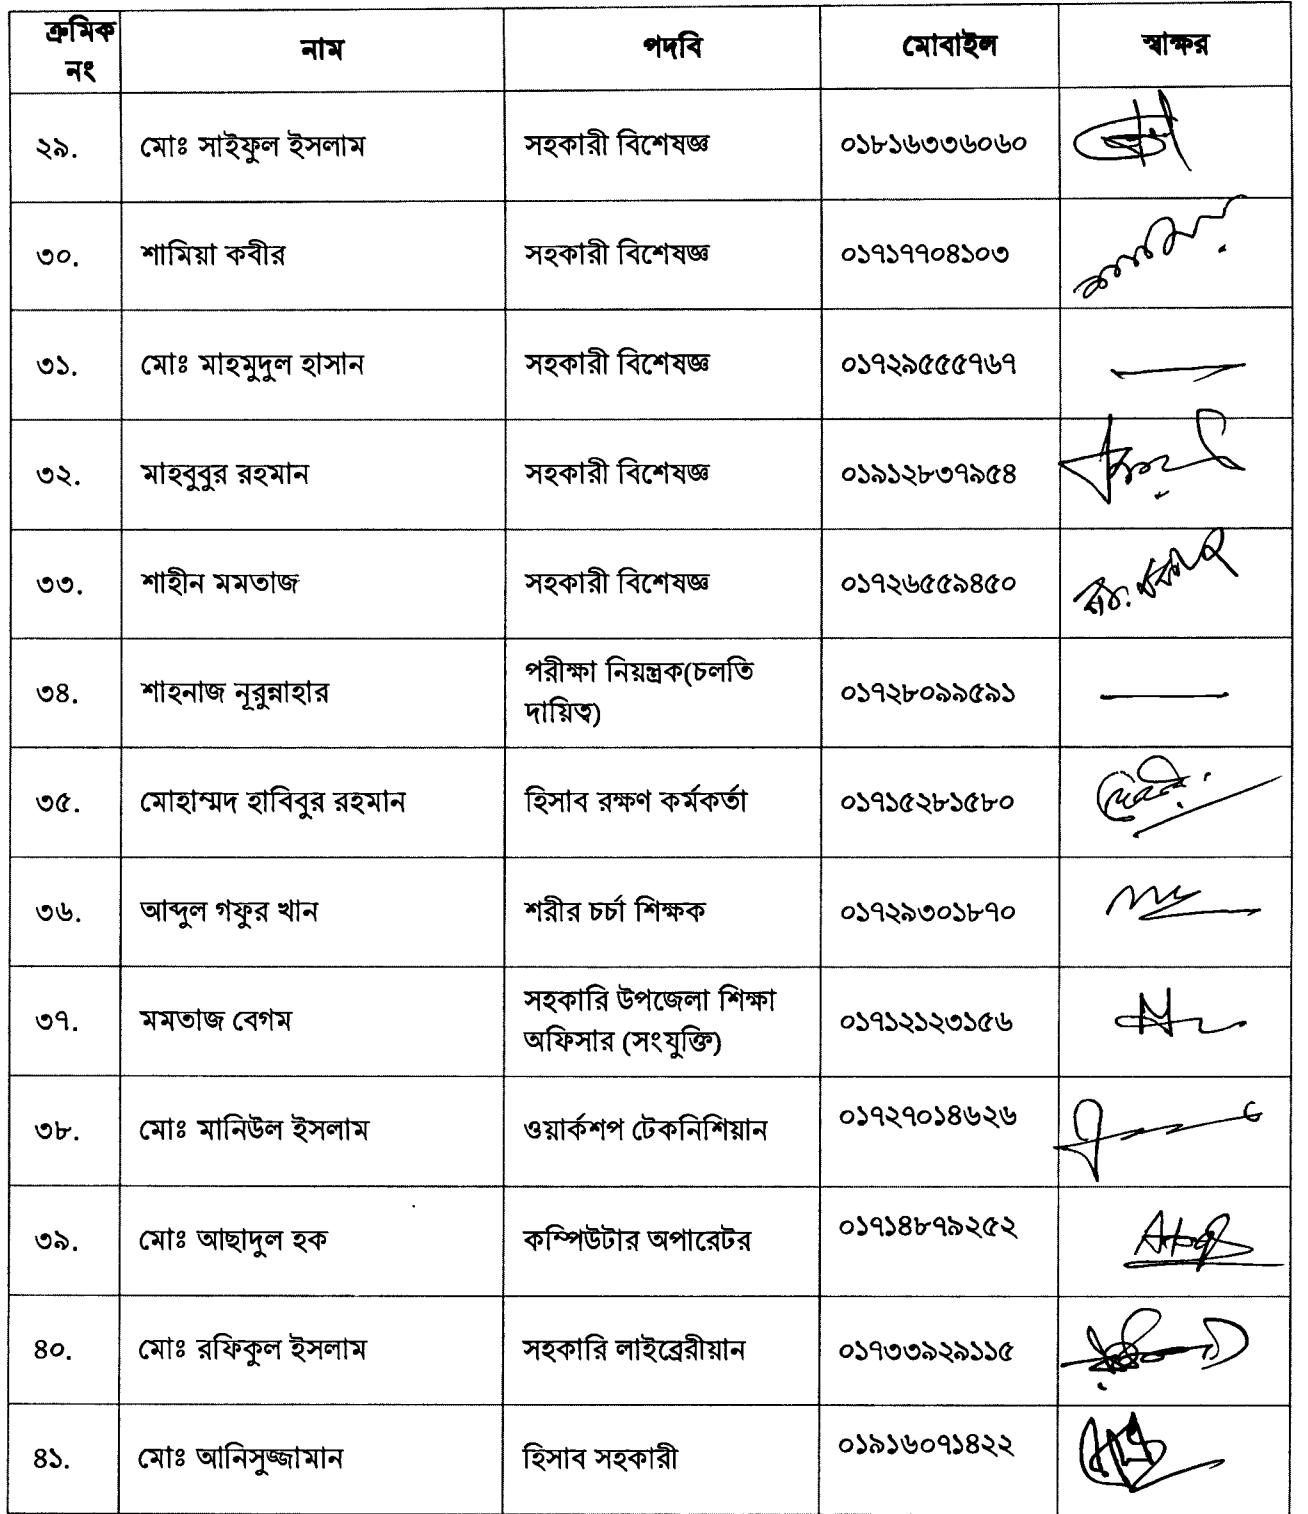 ক্রমিক নং নাম পদবি মোবাইল স্বাক্ষর
২৯. মোঃ সাইফুল ইসলাম সহকারী বিশেষজ্ঞ ০১৮১৬৩৩৬০৬০
৩০. শামিয়া কবীর সহকারী বিশেষজ্ঞ ০১৭১৭৭০৪১০৩
৩১. মোঃ মাহমুদুল হাসান সহকারী বিশেষজ্ঞ ০১৭২৯৫৫৫৭৬৭
৩২. মাহবুবুর রহমান সহকারী বিশেষজ্ঞ ০১৯১২৮৩৭৯৫৪
৩৩. শাহীন মমতাজ সহকারী বিশেষজ্ঞ ০১৭২৬৫৫৯৪৫০
৩৪. শাহনাজ নূরুন্নাহার পরীক্ষা নিয়ন্ত্রক(চলতি
দায়িত্ব) ০১৭২৮০৯৯৫৯১
৩৫. মোহাম্মদ হাবিবুর রহমান হিসাব রক্ষণ কর্মকর্তা ০১৭১৫২৮১৫৮০
৩৬. আব্দুল গফুর খান শরীর চর্চা শিক্ষক ০১৭২৯৩০১৮৭০
৩৭. মমতাজ বেগম সহকারি উপজেলা শিক্ষা
অফিসার (সংযুক্তি) ০১৭১২১২৩১৫৬
৩৮. মোঃ মানিউল ইসলাম ওয়ার্কশপ টেকনিশিয়ান ০১৭২৭০১৪৬২৬
৩৯. মোঃ আছাদুল হক কম্পিউটার অপারেটর ০১৭১৪৮৭৯২৫২
৪০. মোঃ রফিকুল ইসলাম সহকারি লাইব্রেরীয়ান ০১৭৩৩৯২৯১১৫
৪১. মোঃ আনিসুজ্জামান হিসাব সহকারী ০১৯১৬০৭১৪২২